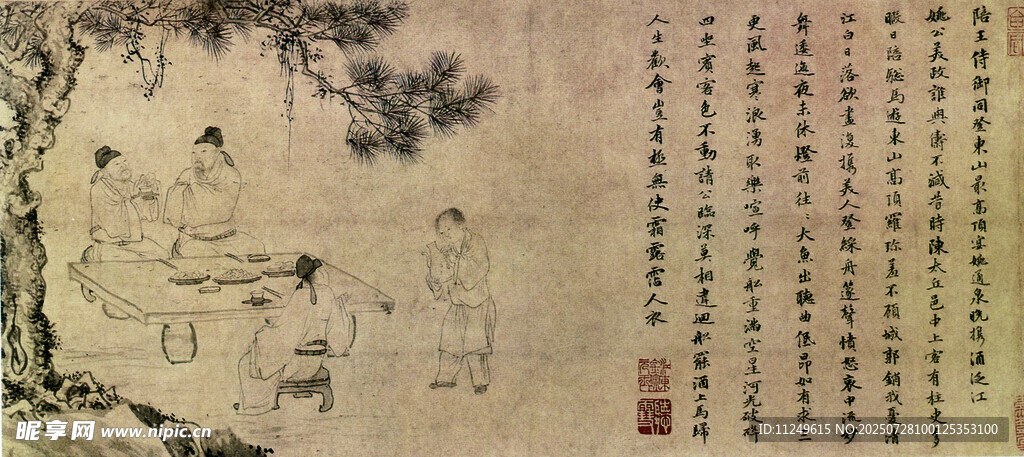 陪王侍御同登東山最高頂宴姚通泉晚携酒泛江
姚公美政誰與儔不減昔時陳太丘邑中上客有柱史多
暇日陪驄馬遊東山高頂羅珍羞不顧城郭銷我憂清
江白日落欲盡復携美人登綵舟篴聲憤怨哀中流妙
舞逶迤夜未休燈前往〻大魚出聽曲低昂如有求三
更風起寒浪湧取樂喧呼覺船重滿空星河光破碎
四坐賓客色不動請公臨深莫相違迴船罷酒上馬歸
人生歡會豈有極無使霜露霑人衣
昵享网 www.nipic.cn
ID:11249615 NO:20250728100125353100